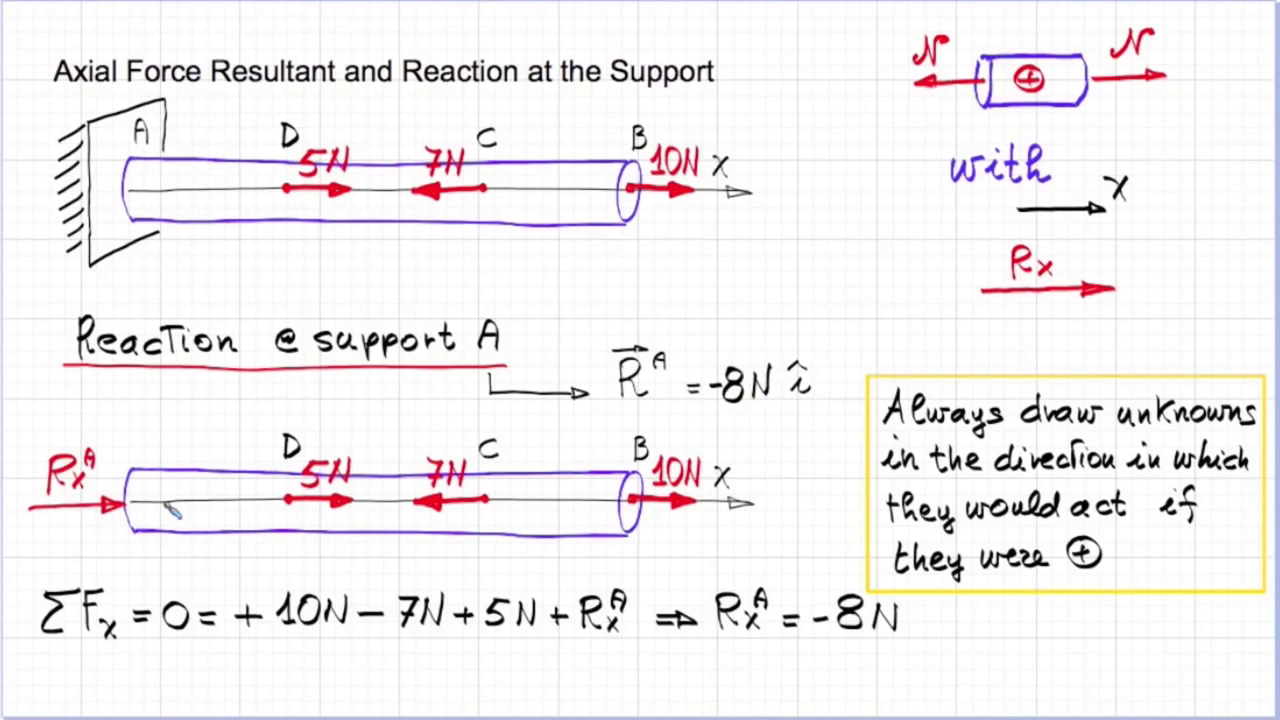 Axial Force Resultant and Reaction at the Support
N N
⊕
A D 5N 7N C B 10N x
with
x
Rx
Reaction @ support A
R⃗ᴬ = -8N î
Always draw unknowns
in the direction in which
they would act if
they were ⊕
Rₓᴬ D 5N 7N C B 10N x
ΣFₓ = 0 = + 10N − 7N + 5N + Rₓᴬ ⇒ Rₓᴬ = -8N